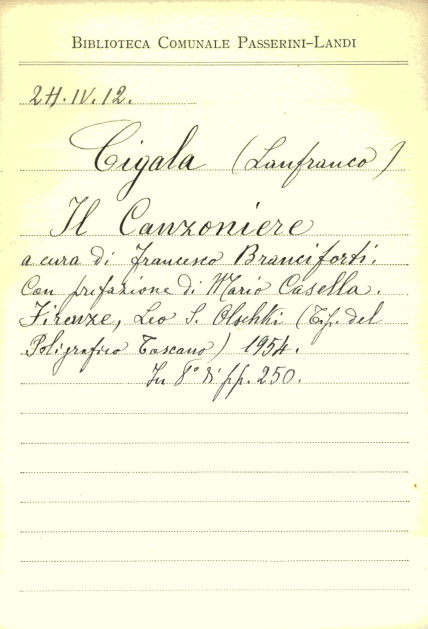 BIBLIOTECA COMUNALE PASSERINI-LANDI
24.IV.12.
Cigala (Lanfranco)
Il Canzoniere
a cura di Francesco Branciforti.
Con prefazione di Mario Casella.
Firenze, Leo S. Olschki (Tip. del
Poligrafico Toscano) 1954.
In 8° di pp. 250.